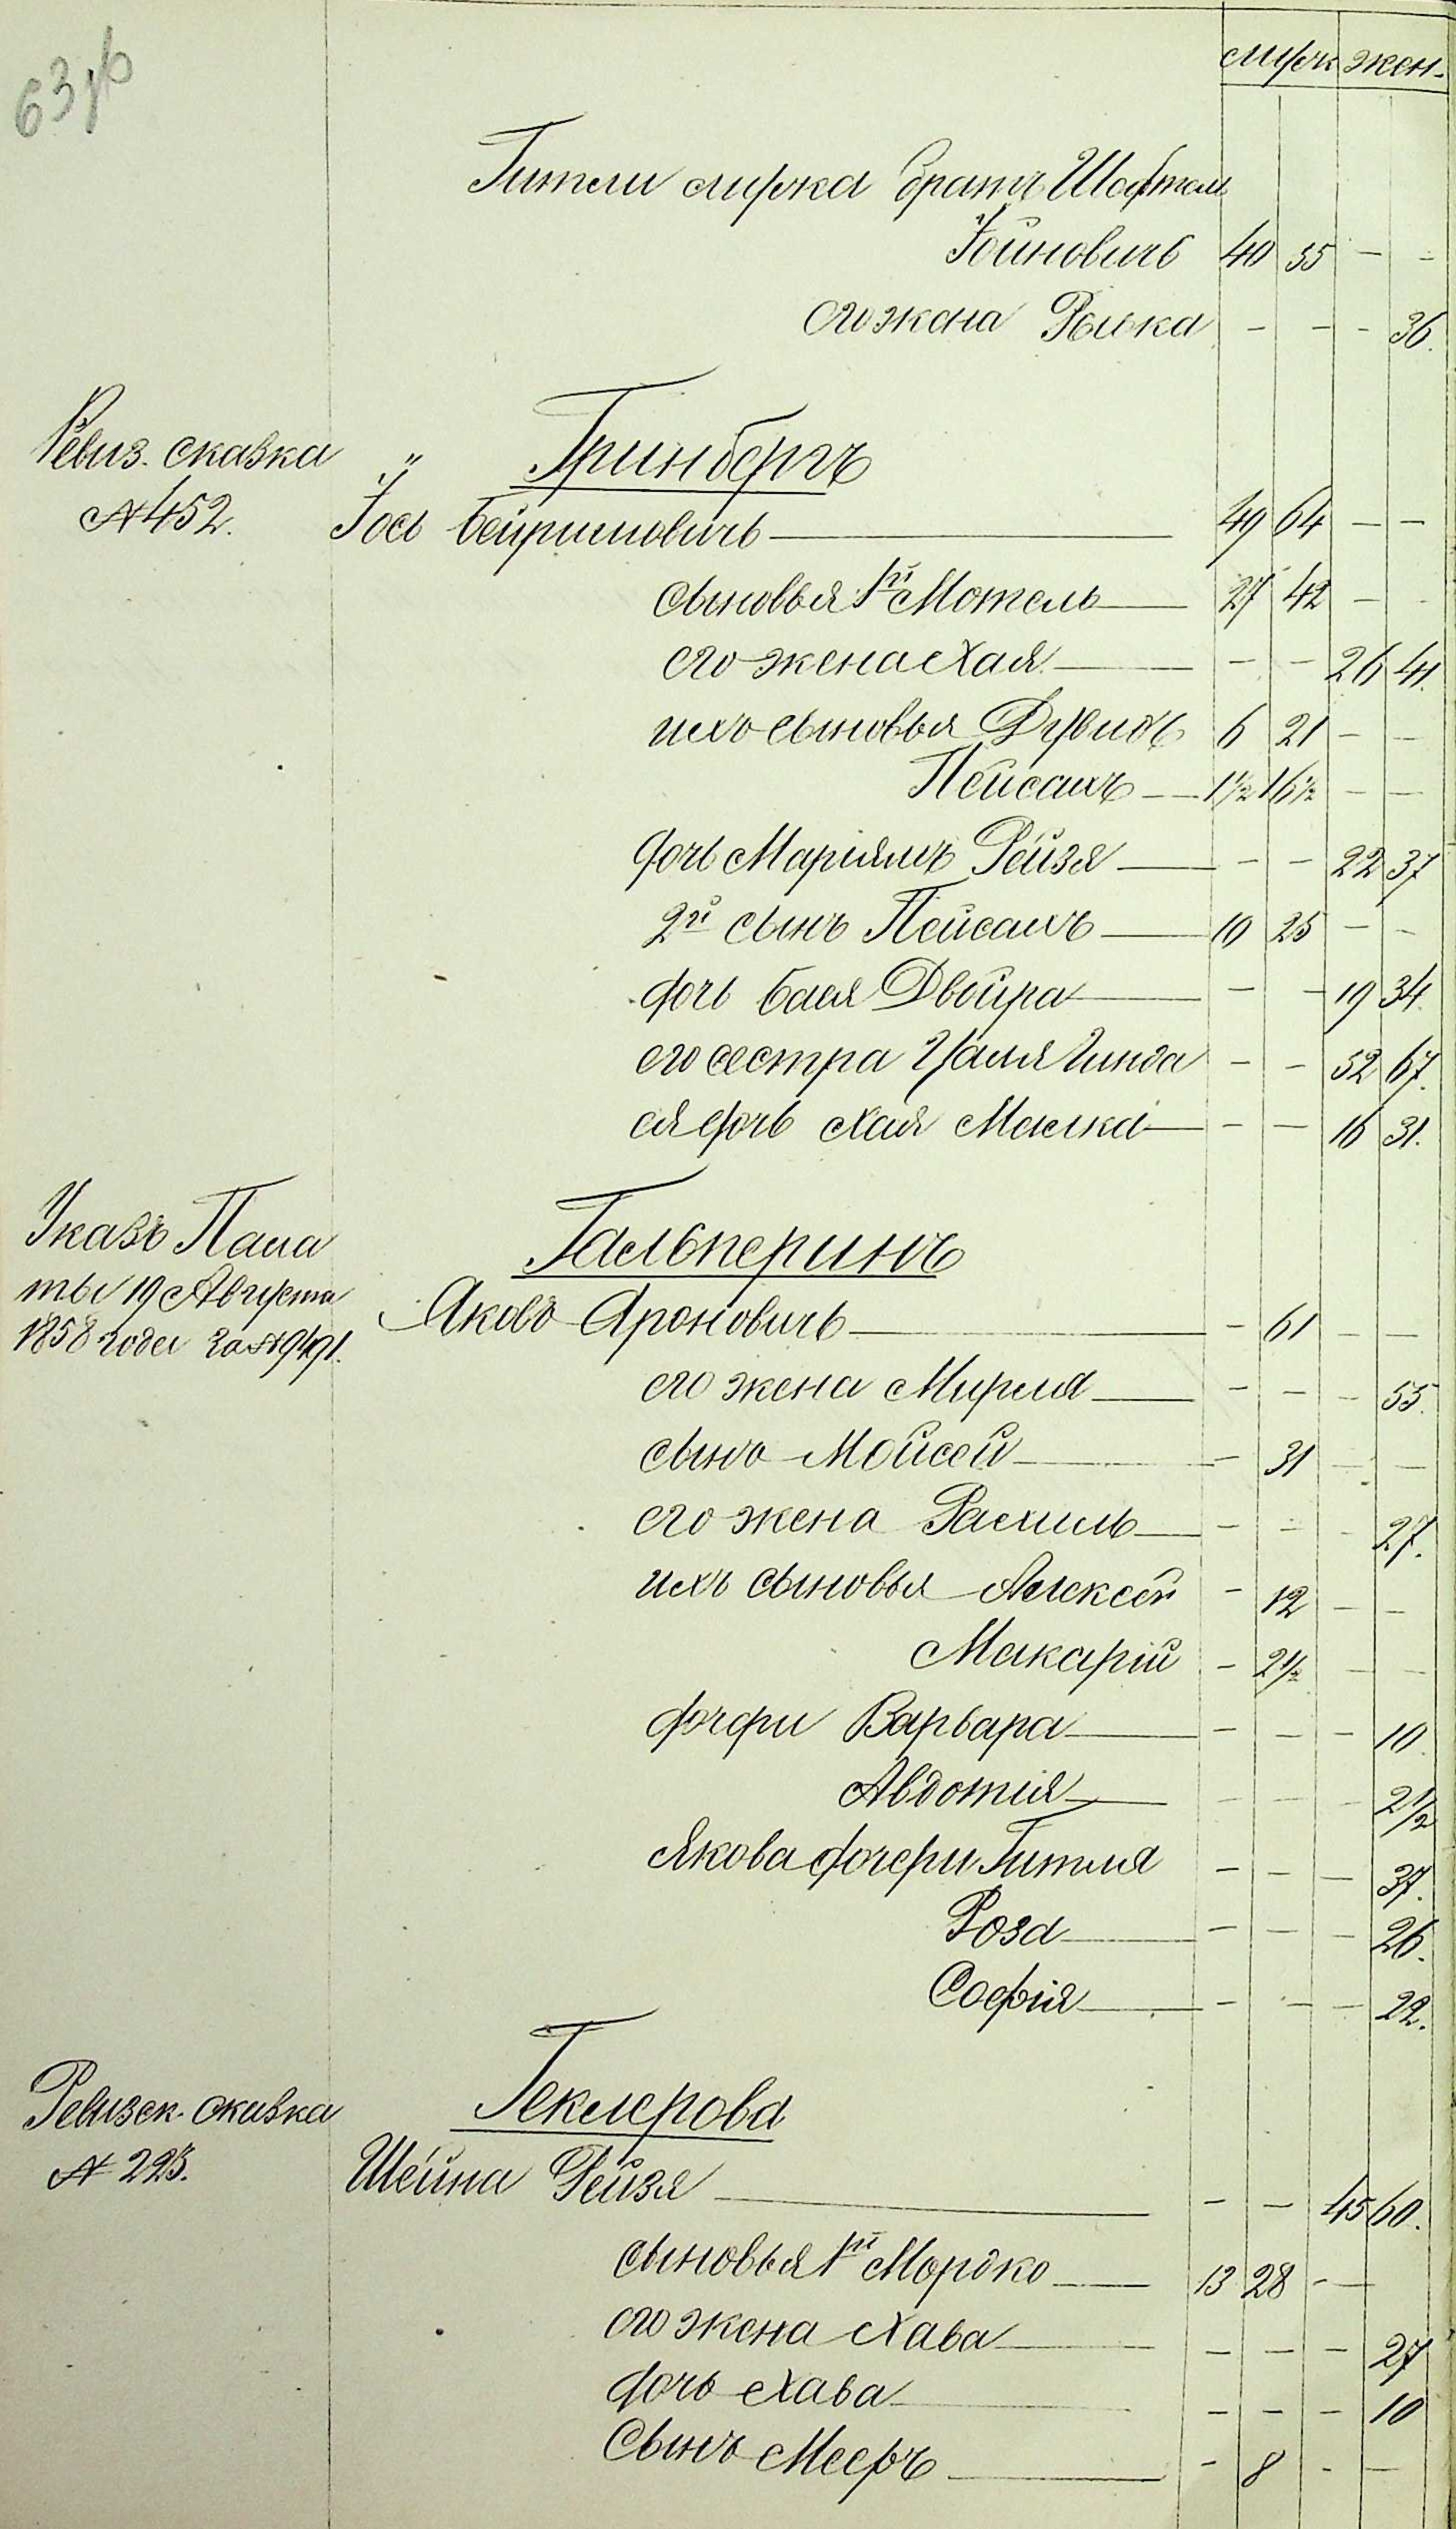 63 об
муж. жен.
Гители мужа братъ Шабтель
Іойновичъ 40 55 — —
его жена Рывка — — — 36.
Гринбергъ
Ревиз. сказка
№ 452. Іось Бейримовичъ 49 64 — —
сыновья 1й Мотель 27 42 — —
его жена Хая — — 26 41.
ихъ сыновья Дувидъ 6 21 — —
Пейсахъ 1½ 16½ — —
дочь Маріямъ Рейзя — — 22 37
2й сынъ Пейсахъ 10 25 — —
дочь Бася Двойра — — 19 34.
его сестра Цаля Гинда — — 52 67.
ея дочь Хая Малка — — 16 31.
Гальперинъ
Указъ Пала
ты 19 Августа
1858 года за № 9491.
Яковъ Ароновичъ — 61 — —
его жена Мирля — — — 55.
сынъ Мойсей — 31 — —
его жена Рахиль — — — 27.
ихъ сыновья Алексей — 12 — —
Макарій — 2½ — —
дочери Варвара — — — 10.
Авдотія — — — 2½
Якова дочери Гитля — — — 37.
Роза — — — 26.
Софія — — — 22.
Геклерова
Ревизск. сказка
№ 223.
Шейна Рейзя — — 45 60.
сыновья 1й Мордко 13 28 — —
его жена Хава — — — 27
дочь Хава — — — 10
Сынъ Мееръ — 8 — —